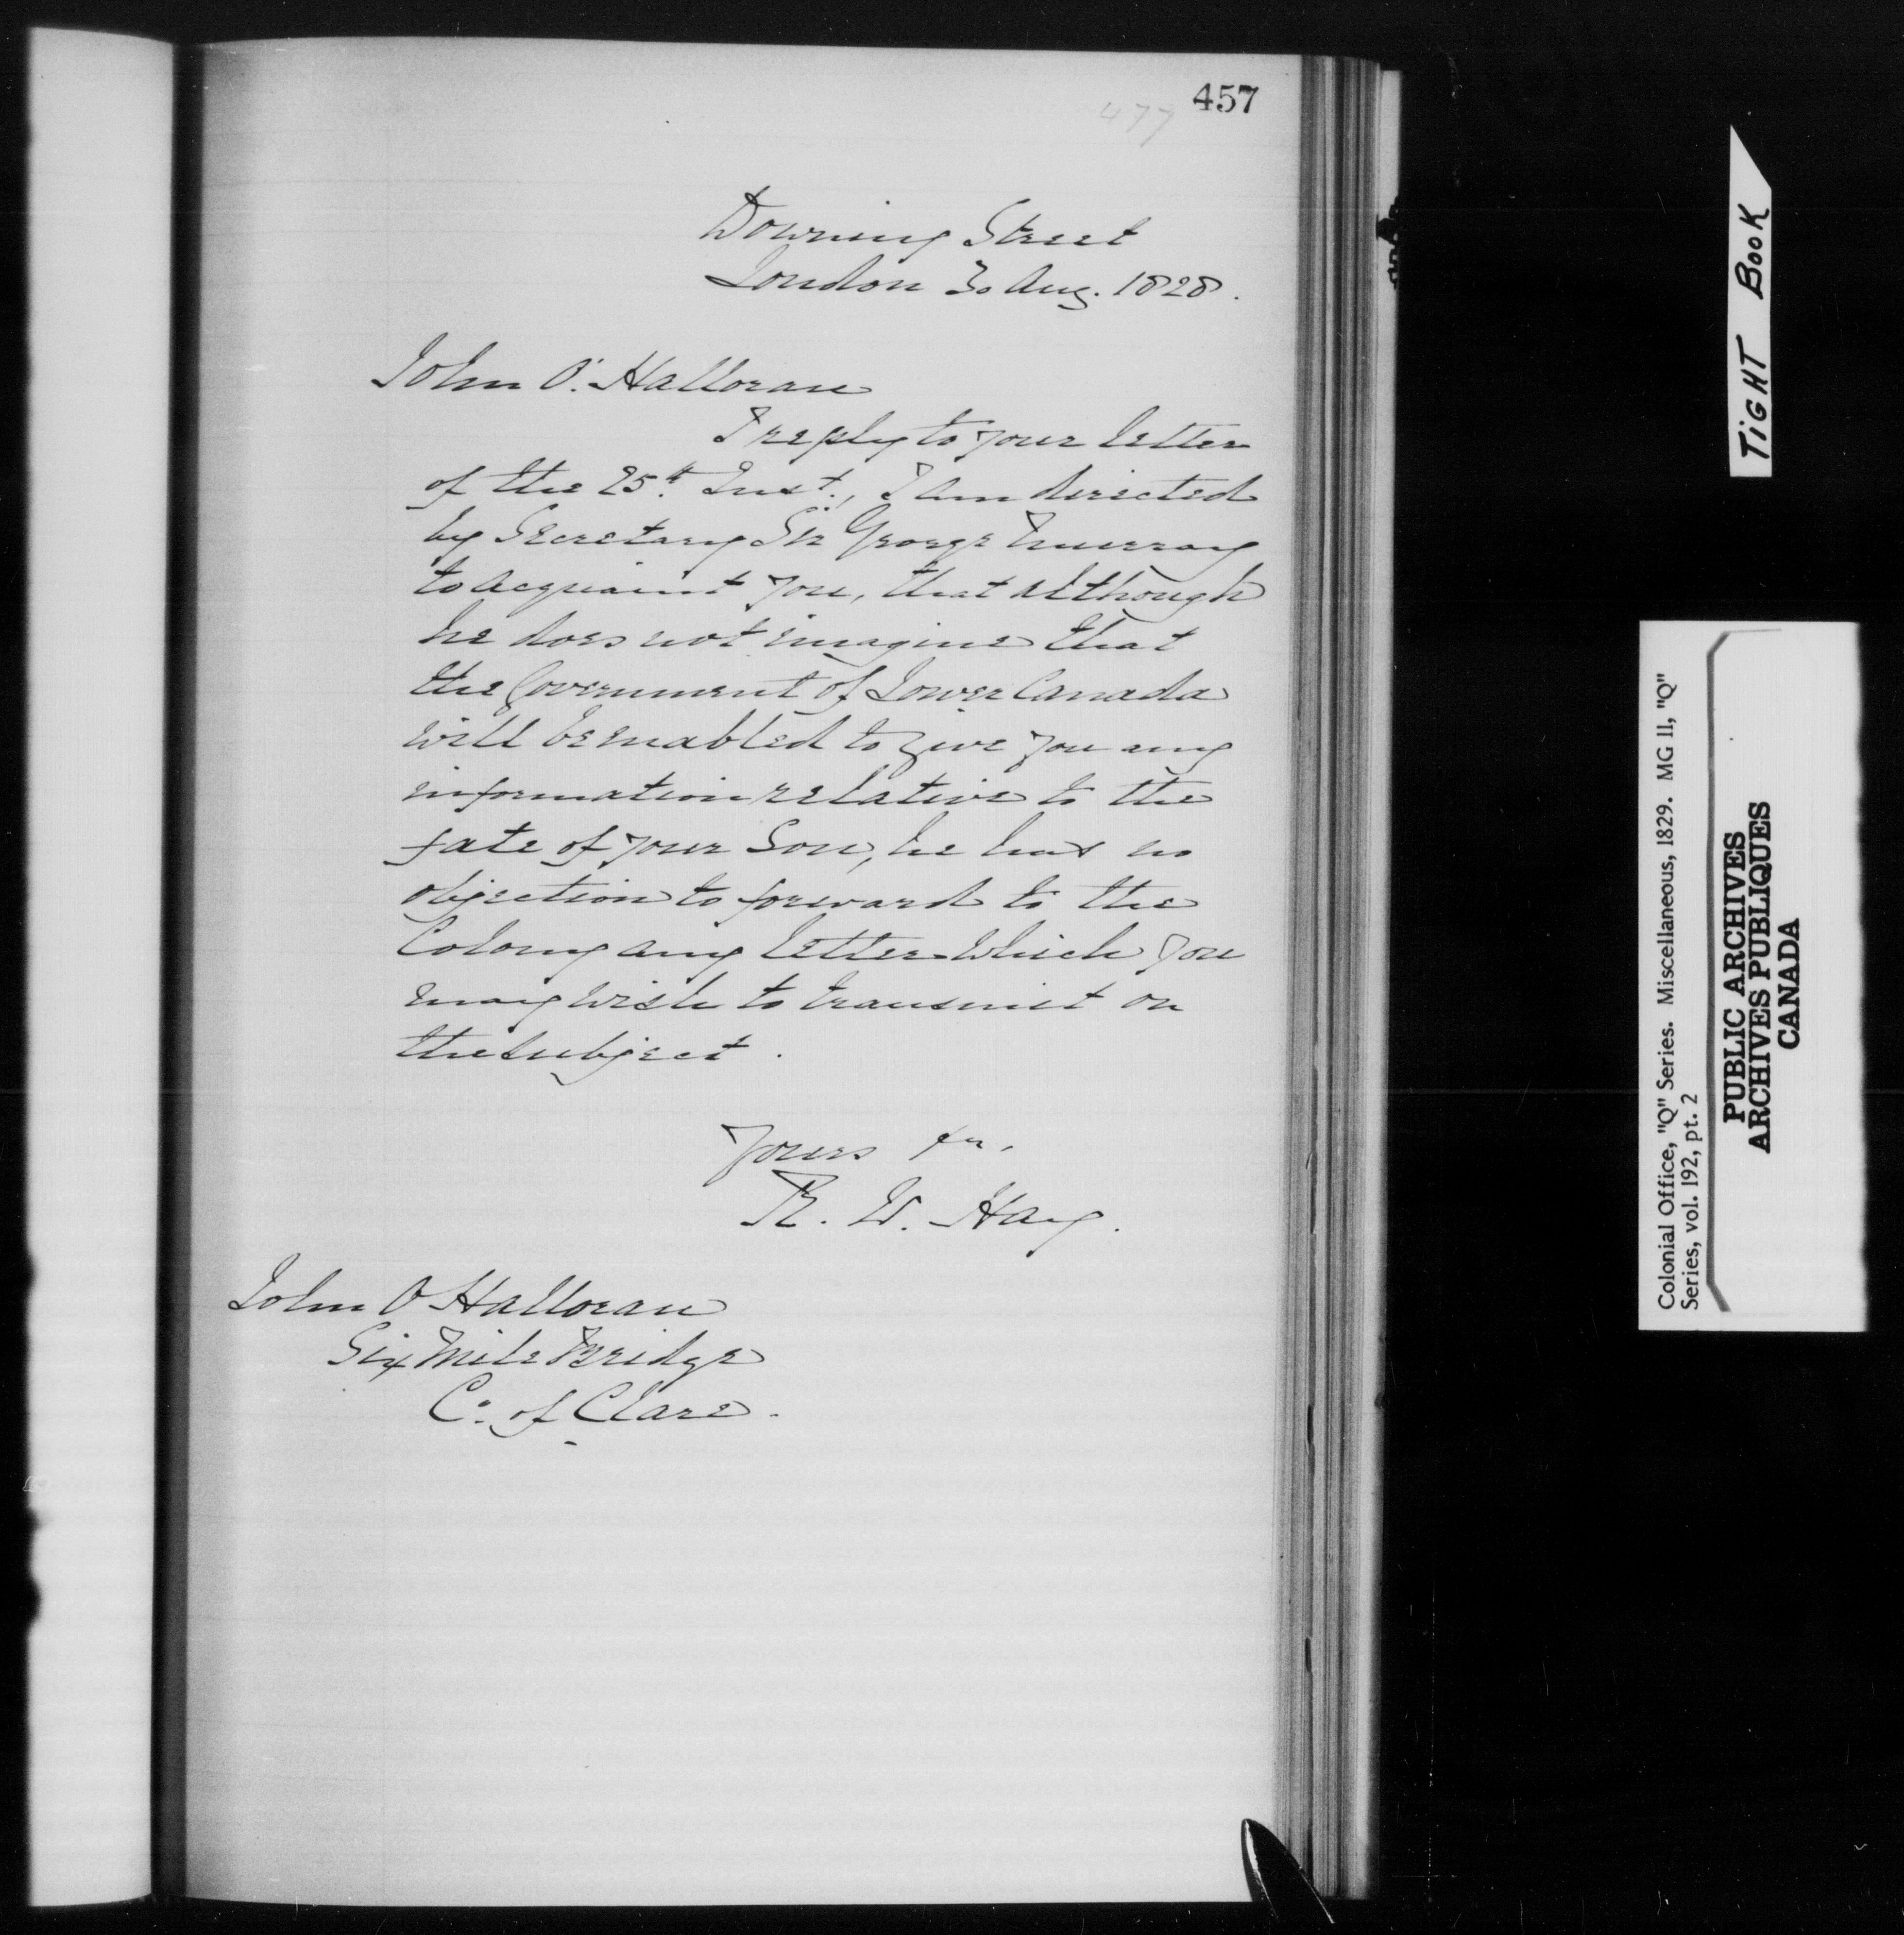 457
477
Downing Street
London 30 Aug. 1828.
John O'Halloran
I reply to your letter
of the 25th Inst., I am directed
by Secretary Sir George Murray
to acquaint you, that although
he does not imagine that
the Government of Lower Canada
will be enabled to give you any
information relative to the
fate of your Son, he has no
objection to forward to the
Colony any letter which you
may wish to transmit on
the subject.
Yours &c.
R. W. Hay.
John O Halloran
Six Mile Bridge
Co. of Clare.
TiGHT BooK
Colonial Office, "Q" Series. Miscellaneous, 1829. MG 11, "Q"
Series, vol. 192, pt. 2
PUBLIC ARCHIVES
ARCHIVES PUBLIQUES
CANADA